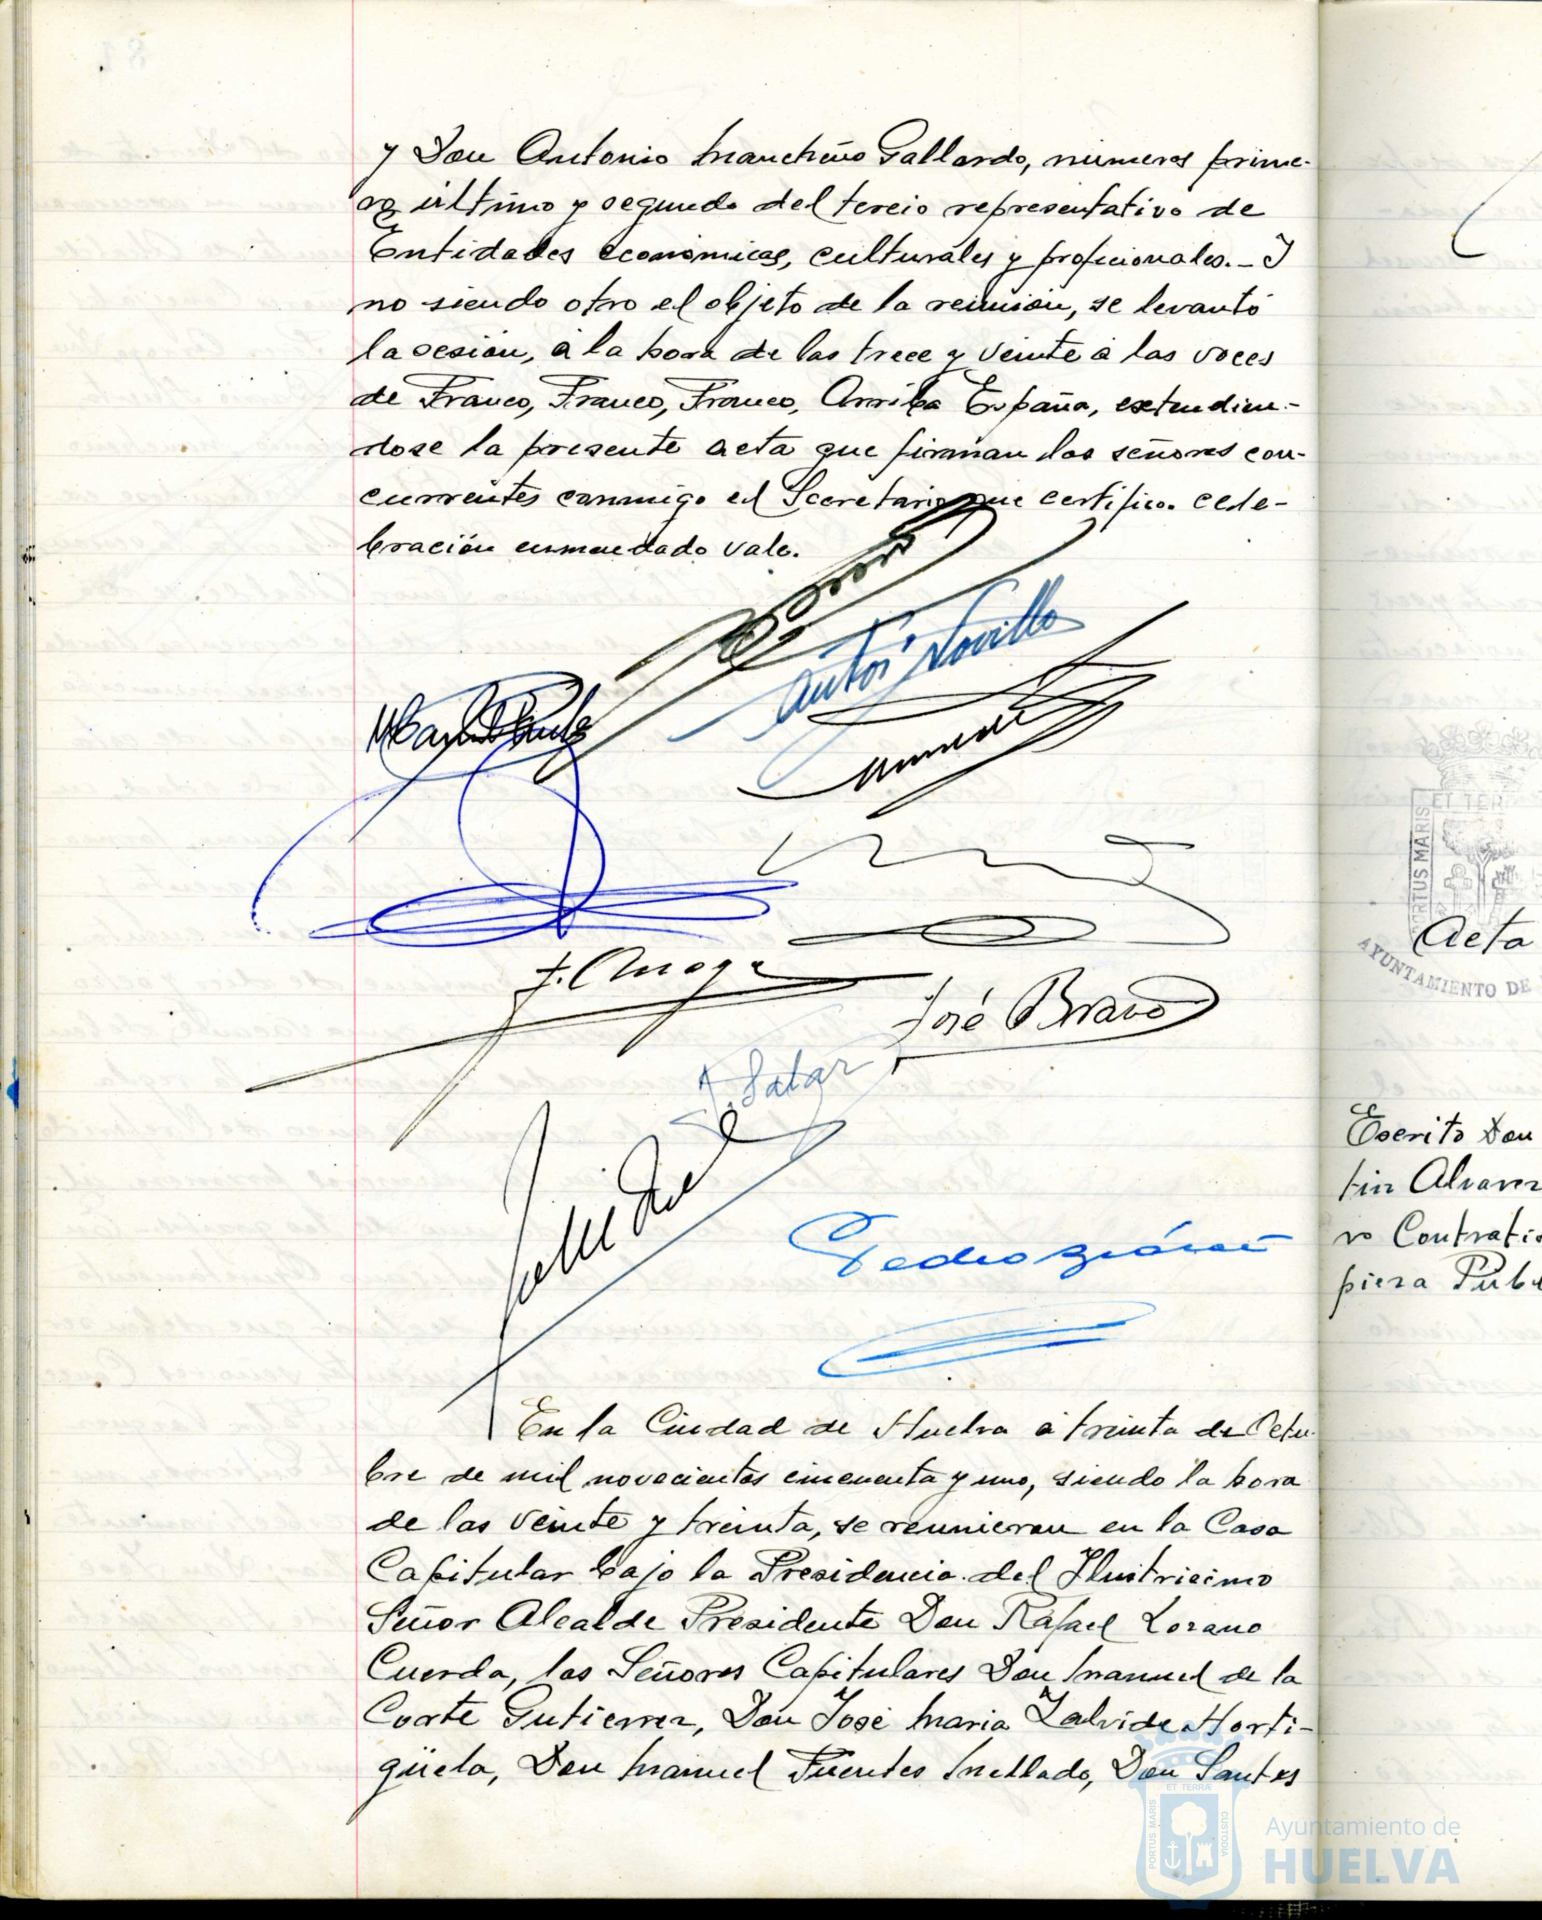 y Don Antonio Mancheño Gallardo, numeros prime-
ro, último y segundo del tercio representativo de
Entidades económicas, culturales y proficionales.- Y
no siendo otro el objeto de la reunión, se levantó
la sesión, a la hora de las trece y veinte a las voces
de Franco, Franco, Franco, Arriba España, extendien-
dose la presente acta que firman los señores con-
currentes conmigo el Secretario que certifico. cele-
bración enmendado vale.
Antº Novillo
José Bravo
En la Ciudad de Huelva a treinta de Octu-
bre de mil novecientos cincuenta y uno, siendo la hora
de las veinte y treinta, se reunieron en la Casa
Capitular bajo la Presidencia del Ilustricimo
Señor Alcalde Presidente Don Rafael Lozano
Cuerda, los Señores Capitulares Don Manuel de la
Corte Gutierrez, Don José Maria Zalvide Horti-
güela, Don Manuel Fuentes Mellado, Don Santos
ET TER
PORTUS MARIS
AYUNTAMIENTO DE
Acta
Escrito Don
tin Alvarez
ro Contratis
pieza Pub
PORTUS MARIS
ET TERRÆ
CUSTODIA
Ayuntamiento de
HUELVA